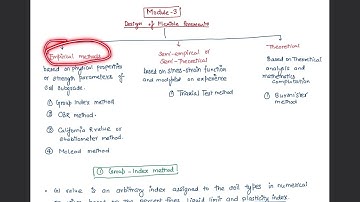 Module-3
Design of Flexible Pavements
Empirical methods
based on physical properties
or strength parameters of
soil subgrade.
① Group Index method
② CBR method
③ California R value or
stabilometer method
④ McLeod method
Semi-empirical or
Semi-Theoretical
based on stress-strain function
and modified on experience
① Triaxial Test method
Theoretical
Based on Theoretical
analysis and
mathematics
computation
① Burmister
method
① Group-Index method
value is an arbitrary index assigned to the soil types in numerical
based on the percent fines, liquid limit and plasticity index.